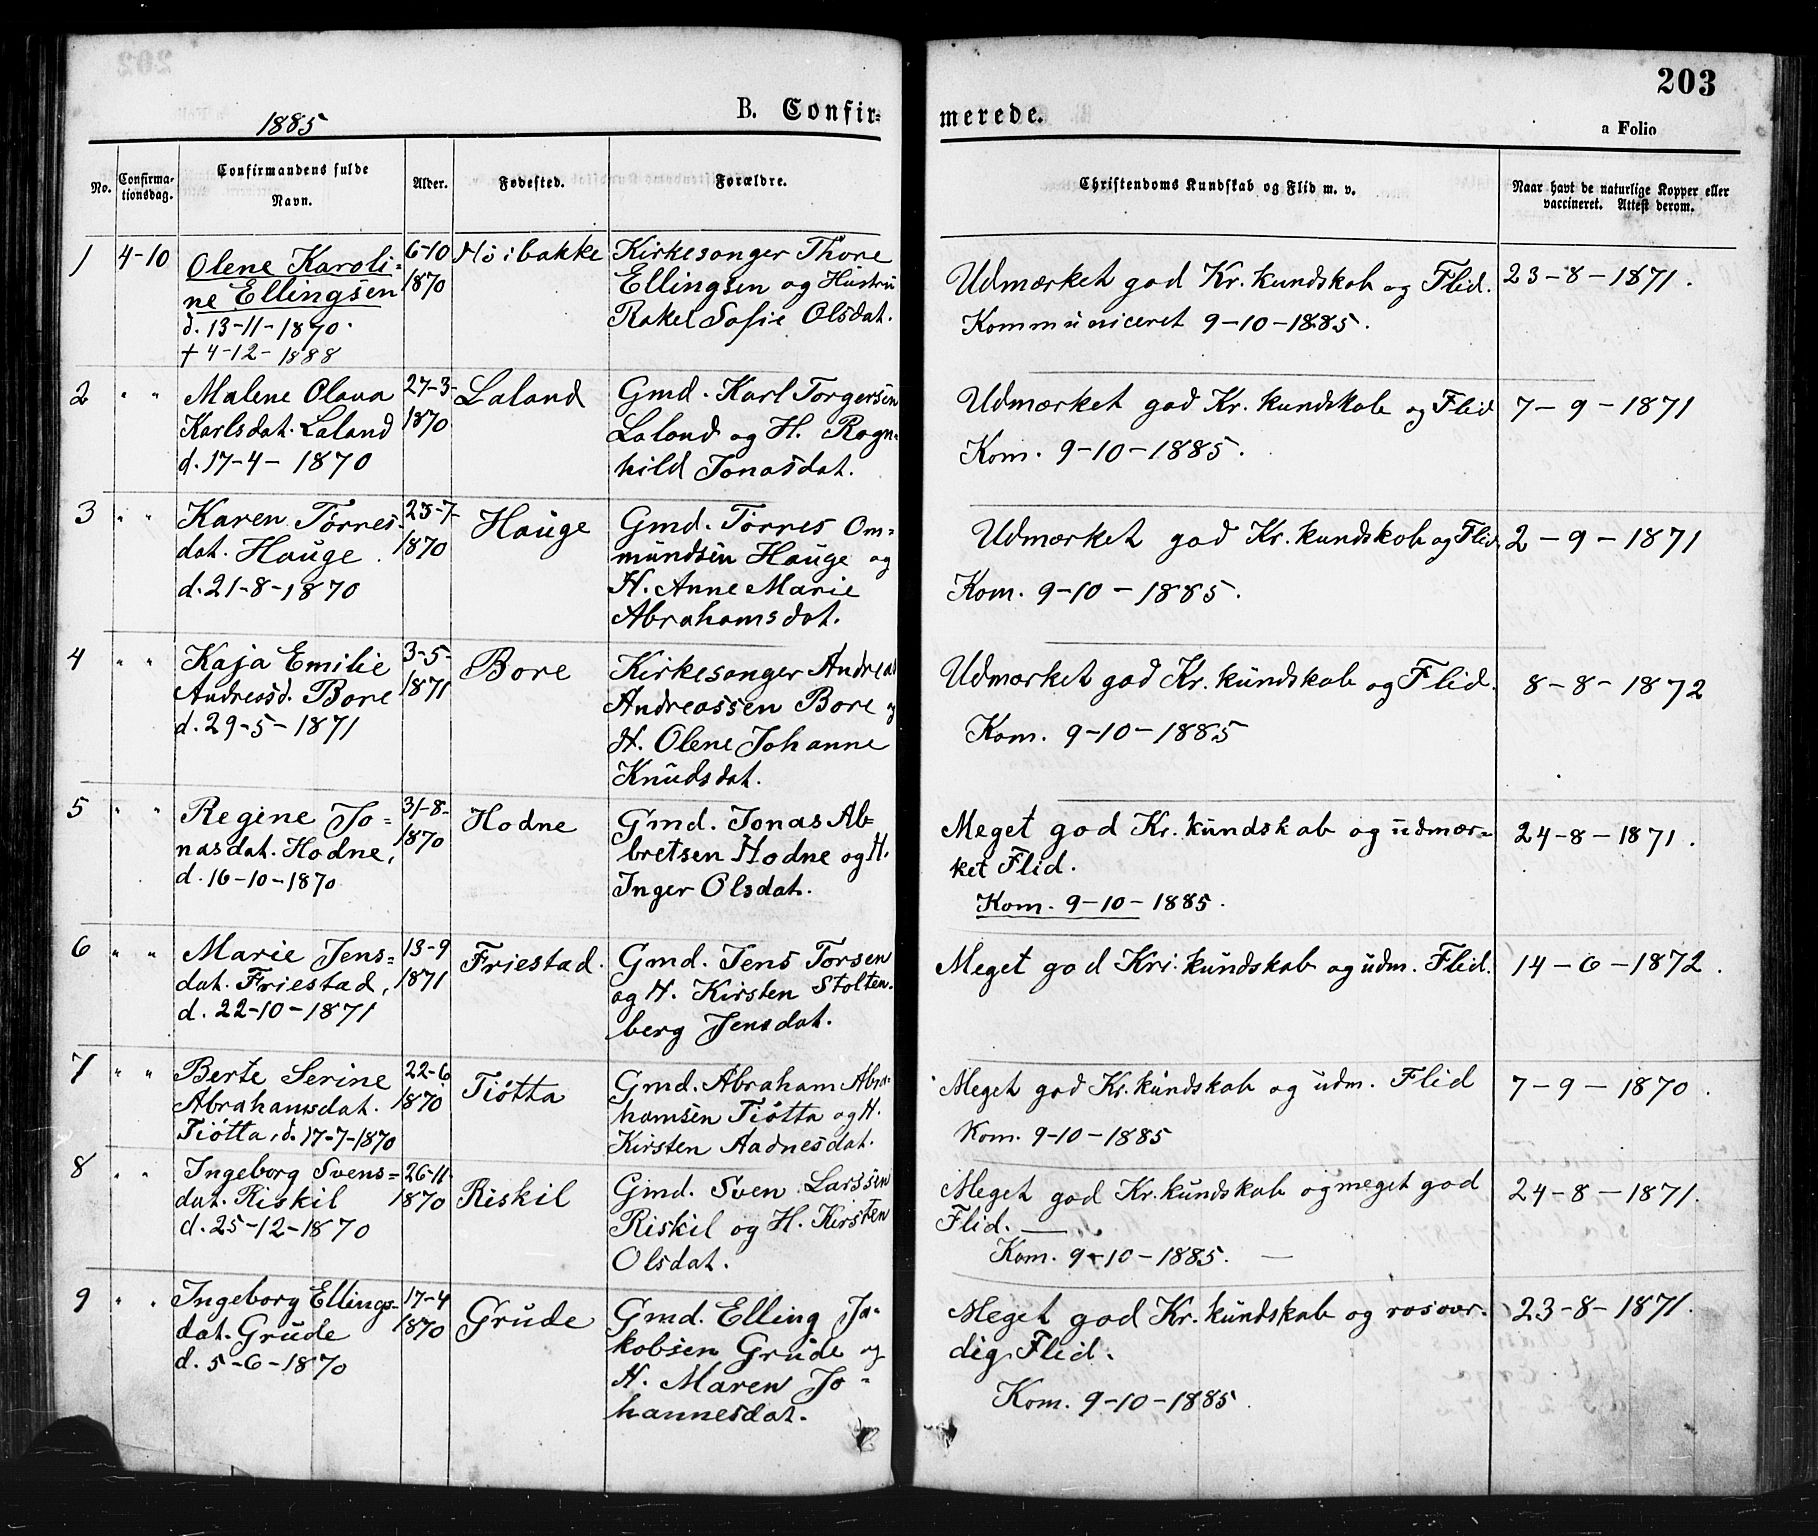 203
1885
B. Confir-
merede.
a Folio
No.
Confirma-
tionsdag.
Confirmandens fulde
Navn.
Alder.
Fødested.
Forældre.
Christendoms Kundskab og Flid m. v.
Naar havt de naturlige Kopper eller
vaccineret. Attest derom.
1 4-10 Olene Karoli-
ne Ellingsen
d. 13-11-1870.
† 4-12-1888
6-10
1870
Høibakke
Kirkesanger Thore
Ellingsen og Hustru
Rakel Sofie Olsdat.
Udmærket god Kr. kundskab og Flid.
Kommuniceret 9-10-1885.
23-8-1871.
2 " " Malene Olava
Karlsdat. Laland
d. 17-4-1870
27-3-
1870
Laland
Gmd. Karl Torgersen
Laland og H. Ragn-
hild Jonasdat.
Udmærket god Kr. kundskab og Flid
Kom. 9-10-1885.
7-9-1871
3 " " Karen Tørres-
dat. Hauge.
d. 21-8-1870
23-7-
1870
Hauge
Gmd. Tørres Om-
mundsen Hauge og
H. Anne Marie
Abrahamsdat.
Udmærket god Kr. kundskab og Flid.
Kom. 9-10-1885.
2-9-1871
4 " " Kaja Emilie
Andreasd. Bore
d. 29-5-1871
3-5-
1871
Bore
Kirkesanger Andreas
Andreassen Bore og
H. Olene Johanne
Knudsdat.
Udmærket god Kr. kundskab og Flid.
Kom. 9-10-1885
8-8-1872
5 " " Regine Jo-
nasdat. Hodne,
d. 16-10-1870
31-8-
1870
Hodne
Gmd. Jonas Ab-
bretsen Hodne og H.
Inger Olsdat.
Meget god Kr. kundskab og udmær-
ket Flid.
Kom. 9-10-1885.
24-8-1871.
6 " " Marie Jens-
dat. Friestad,
d. 22-10-1871
13-9
1871
Friestad.
Gmd. Jens Torsen
og H. Kirsten Stolten-
berg Jensdat.
Meget god Kri. kundskab og udm. Flid.
14-6-1872.
7 " " Berte Serine
Abrahamsdat.
Tiøtta, d. 17-7-1870
22-6
1870
Tiøtta
Gmd. Abraham Abra-
hamsen Tiøtta og H.
Kirsten Aadnesdat.
Meget god Kr. kundskab og udm. Flid
Kom. 9-10-1885
7-9-1870.
8 " " Ingeborg Svens-
dat. Riskil
d. 25-12-1870
26-11-
1870
Riskil
Gmd. Sven Larssen
Riskil og H. Kirsten
Olsdat.
Meget god Kr. kundskab og meget god
Flid. —
Kom. 9-10-1885. —
24-8-1871.
9 " " Ingeborg Ellings-
dat. Grude
d. 5-6-1870
17-4
1870
Grude
Gmd. Elling Ja-
kobsen Grude og
H. Maren Jo-
hannesdat.
Meget god Kr. kundskab og rosvær-
dig Flid.
Kom. 9-10-1885.
23-8-1871.